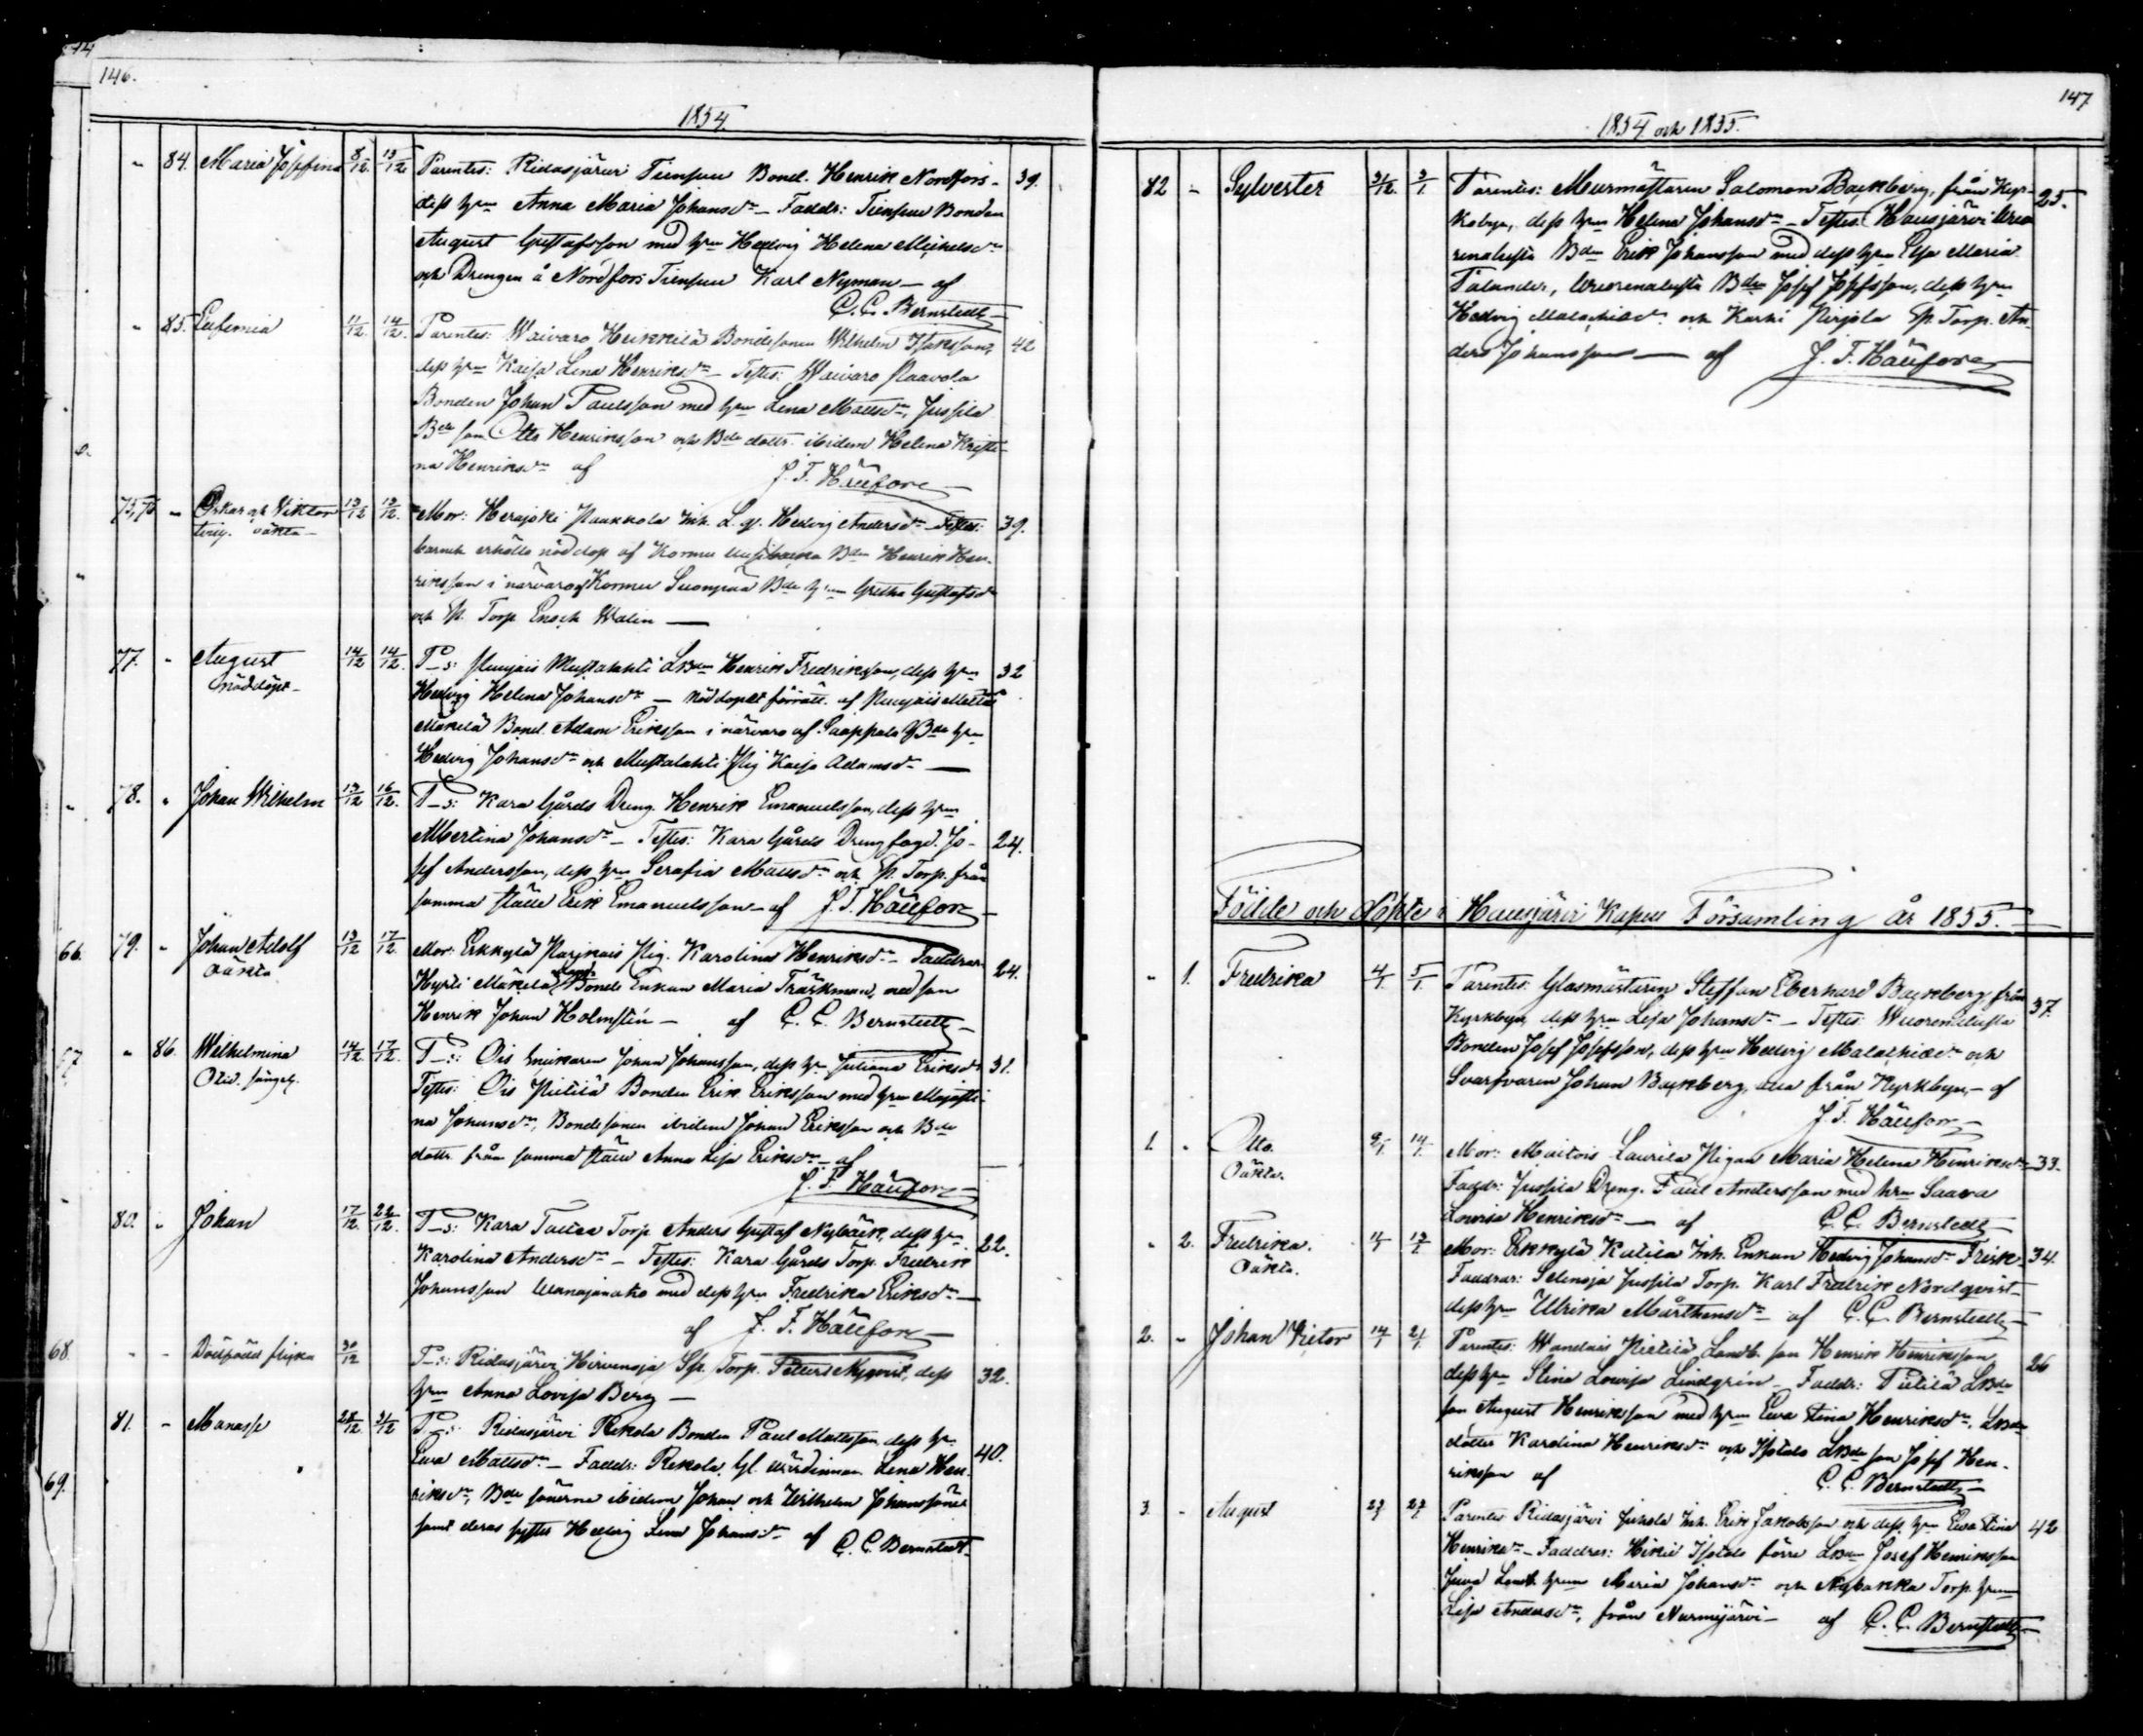 146.
1854.
" 84. Maria Josefina 8/12 13/12 Parentes: Ridasjärvi Tienpuu Bond. Henrik Nordfors- 39.
dess hru Anna Maria Johansdr – Faddr: Tienpuu Bonden
August Gustafsson med hru Hedvig Helena Michelsdr
och Drengen å Nordfors Tienpuu Karl Nyman – af
C. C. Bernstedt
" 85. Eufemia 11/12 14/12 Parentes: Waivaro Heikkilä Bondesonen Wilhelm Isaksson, 42
dess hru Kaisa Lena Henriksdr – Testes: Waivaro Paavola
Bonden Johan Paulsson med hru Lena Mattsdr, Jussila
Bde son Otto Henriksson och Bde dottr. ibidem Helena Kristi-
na Henriksdr af J. F. Häufore
75, 76 " Oskar och Viktor 13/12 13/12 Mor: Herajoki Paakkola Inh. L. qp. Hedvig Andersdr Testes: 39.
tvill. oäkta –
barnen erhöllo nöddop af Kormu Uusikarra Bdn Henrik Hen-
riksson i närvaro af Kormu Suonpää Bde hrun Gretha Gustafsdr
och Sp. Torp Enoch Walin –
77. " August 14/12 14/12 P–s: Punjais Mustalahti LBdn Henrik Fredriksson, dess hru 32
Nöddöpt –
Hedvig Helena Johansdr – Nöddopet förrätt. af Punjais Mattas
Mäkelä Bond. Adam Eriksson i närvaro af Saappala Bde hru
Hedvig Johansdr och Mustalahti Pig Kaisa Adamsdr –
78. " Johan Wilhelm 13/12 16/12 P–s: Kara Gårds Dreng. Henrik Emanuelsson, dess hru
Albertina Johansdr – Testes: Kara Gårds Drengfogd. Jo- 24.
sef Andersson, dess hru Serafia Mattsdr och Sp. Torp. från
samma ställe Erik Emanuelsson – af J. F. Häufore
66. 79. " Johan Adolf 13/12 17/12 Mor: Erkkylä Parjkais Pig. Karolina Henriksdr – Faddrar 24.
Oäkta
Hyrli Mäkelä Bonde Enkan Maria Träskman, med son
Henrik Johan Holmstén – af C. C. Bernstedt
67. " 86. Wilhelmina 14/12 17/12 P–s: Ois Snickaren Johan Johansson, dess hr Juliana Eriksdr 31.
Testes: Ois Pietilä Bonden Erik Eriksson med hru Majasti-
na Johansdr, Bondesonen ibidem Johan Eriksson och Bde
dottr. från samma ställe Anna Lisa Eriksdr – af
J. F. Häufore
80. " Johan 17/12 22/12 P–s: Kara Torp Anders Gustaf Nybäck, dess hr 22.
Karolina Andersdr – Testes: Kara Gårds Torp. Fredrik
Johansson med dess hru Fredrika Eriksdr –
af J. F. Häufore
68. " " Dödfödd flicka 30/12 P–s: Ridasjärvi Hirvenoja Sp. Torp. Petter Nyqvist, dess 32.
hru Anna Lovisa Berg –
81. " Manasse 28/12 31/12 P–s: Ridasjärvi Rekola Bonden Paul Mattsson dess hr. 40.
69.
Ewa Mattsdr – Faddr: Rekola Gl. wärdinnan Lena Hen-
riksdr, Bde sönerne ibidem Johan och Wilhelm Johanssöner
samt deras syster Hedvig Lena Johansdr af C. C. Bernstedt
147
1854 och 1855.
82 " Sylvester 31/12 3/1 Parentes: Murmästaren Salomon Backberg, från Kyr- 25.
kobyn, dess hru Helena Johansdr – Testes: Hausjärvi Wuo
renalusta Bdn Erik Johansson med dess hru Elsa Maria
Talander, Wuorenalusta Bdn Josef Josefsson, dess hru
Hedvig Malachiædr och Karhi Perjola Sp. Torp. An-
ders Johansson – af J. F. Häufore
Födde och döpte i Hausjärvi Kapell Församling år 1855. –
" 1. Fredrika 4/1 5/1 Parentes: Glasmästaren Steffan Eberhard Backberg från 37.
Kyrkbyn, dess hru Lisa Johansdr – Testes: Wuorenalusta
Bonden Josef Josefsson, dess hru Hedvig Malachiædr och
Svarfvaren Johan Backberg, alla från Kyrkbyn, – af
J. F. Häufore
1. " Otto. 9/1 14/1 Mor: Maitois Laurila Pigan Maria Helena Henriksdr 33.
Oäkta.
Faddr: Jussila Dreng. Paul Andersson med hru Saava
Lovisa Henriksdr – af C. C. Bernstedt
" 2. Fredrika. 11/1 13/1 Mor: Erkkylä Kutila Inh. Enkan Hedvig Johansdr Frisk 34.
Oäkta.
Faddrar: Selinoja Jussila Torp. Karl Fredrik Nordqvist
dess hr Ulrika Mårthensdr af C. C. Bernstedt
2. " Johan Victor 14/1 21/1 Parentes: Wandais Pietilä Landb. son Henrik Henriksson 26
dess hru Stina Lovisa Lindgrén – Faddr: Pietilä LBde
son August Henriksson med hru Ewa Stina Henriksdr, LBde
dotter Karolina Henriksdr och Isotalo LBde son Josef Hen-
riksson af C. C. Bernstedt
3. " August 23/1 27/1 Parentes Ridasjärvi Juhola Inh. Erik Jakobsson och dess hru Ewa Stina 42
Henriksdr – Faddrar: Hikiä Isotalo förre LBdn Josef Henriksson
Juva Landb. hrun Maria Johansdr och Nybakka Torp. hrun
Lisa Andersdr, från Nurmijärvi – af C. C. Bernstedt